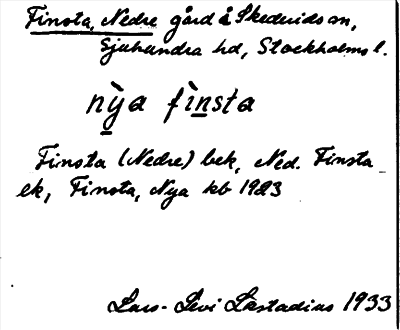 Finsta, Nedre gård å Skederids sn,
Sjuhundra hd, Stockholms l.
nỳa fìnsta
Finsta (Nedre) bek, Ned. Finsta
ek, Finsta, Nya kb 1923
Lars-Levi Læstadius 1933